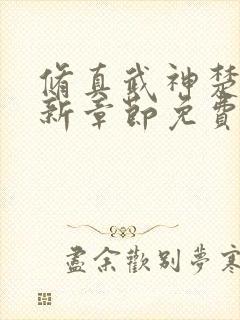 脩真武神楚
新章節免費
盡余歡别夢寒